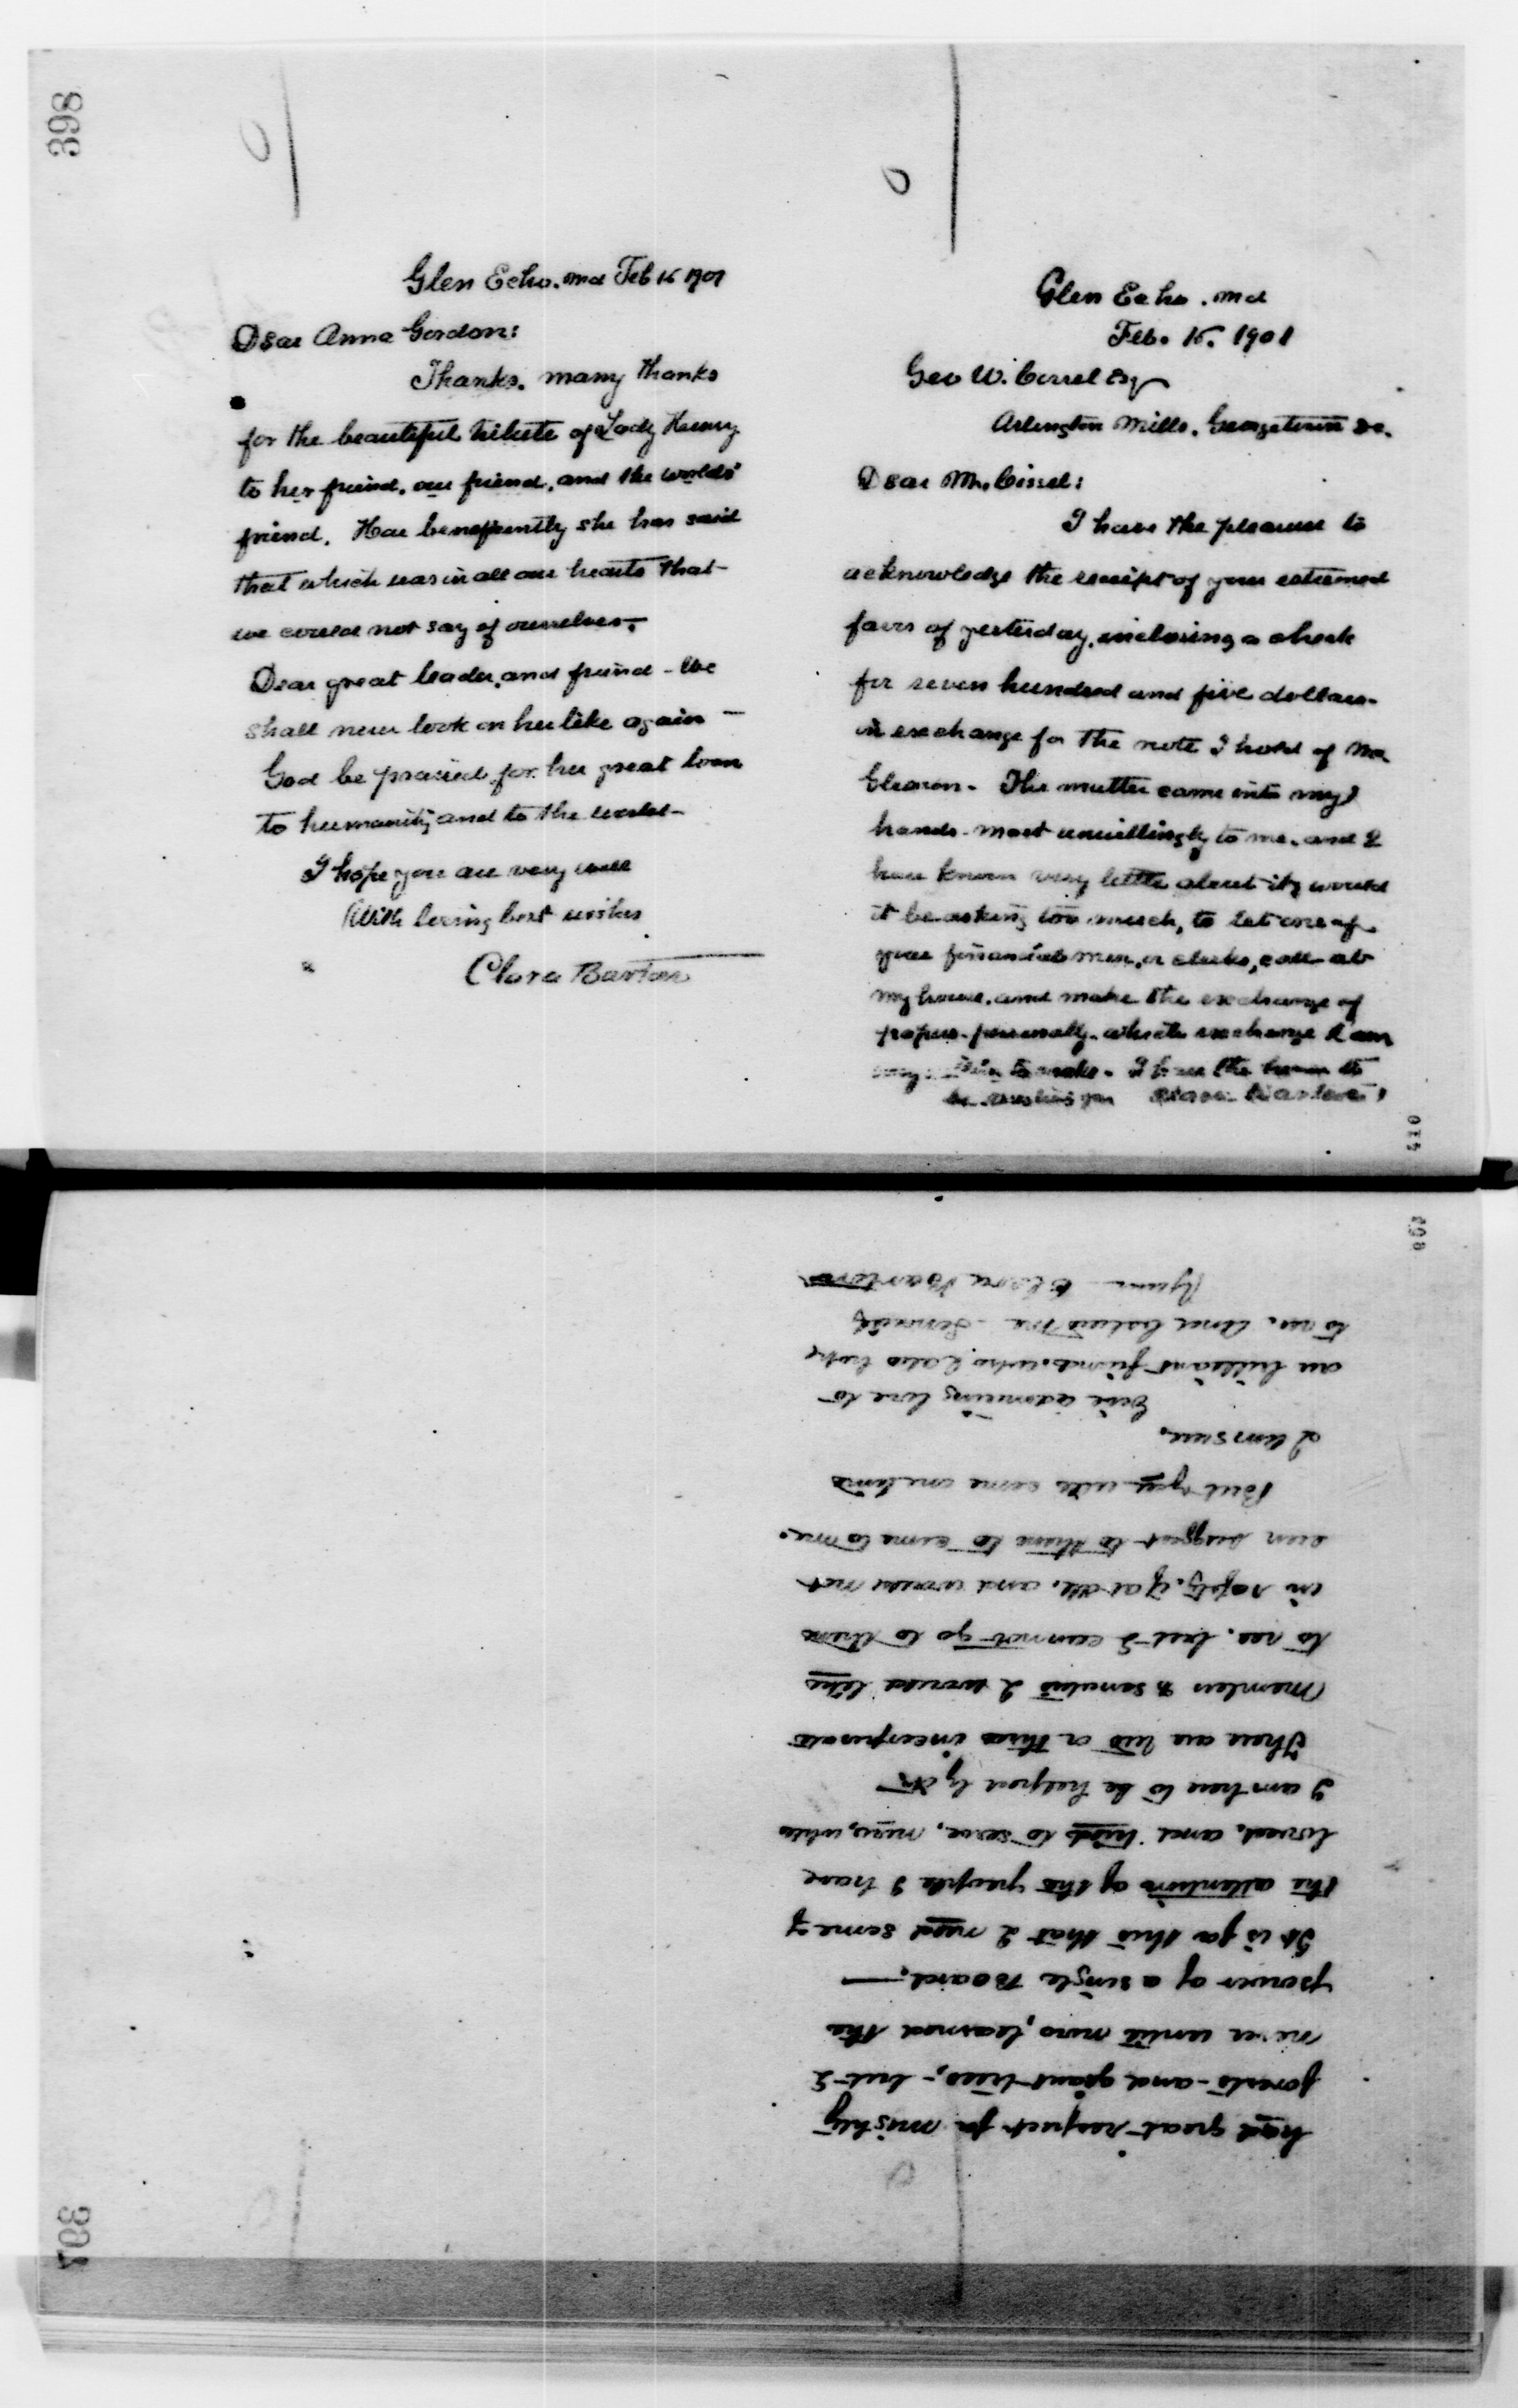 398
Glen Echo. Md Feb 15 1901
Dear Anna Gordon:
Thanks. many thanks
for the beautiful tribute of Lady Henry
to her friend, our friend, and the worlds'
friend. How she has said
that which was in all our hearts that
we could not say of ourselves.
Dear great leader, and friend - We
shall never look on her like again -
God be praised for her great loan
to humanity and to the world -
I hope you are very well
With loving best wishes
Clara Barton
Glen Echo. Md
Feb. 15. 1901
Geo W. Cissel Esq
Arlington Mills. Georgetown DC.
Dear Mr. Cissel:
I have the pleasure to
acknowledge the receipt of your esteemed
favor of yesterday, inclosing a check
for seven hundred and five dollars -
in exchange for the note I hold of Mr
Gleason - The matter came into my
hands - most unwillingly to me, and I
have known very little about it, would
it be asking too much, to let one of
your financial men, or clerks, call at
my house, and make the exchange of
papers - personally - which exchange I am
very to make - I have the honor to
be Clara Barton
410
had great respect for mighty
forests - and giant trees, - but I
never until now, learned the
power of a single Board. -
It is for this that I need some of
the attention of the people I have
loved, and tried to serve, now, while
I am here to be helped by it -
There are two or three
Members & senators I would like
to see, but I cannot go to them
in safety, if at all, and would not
even suggest to them to come to me.
But you will come one time
I am sure.
Give admiring love to
our brilliant friends, who I also hope
to see. And believe me Sincerely
Yours - Clara Barton
397